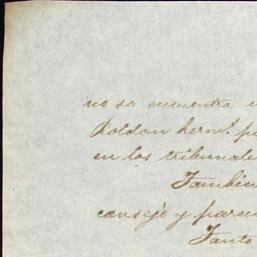 no se encuentra
Roldan herm.
en los tribunale
Tambien
consejo y parec
Tanto